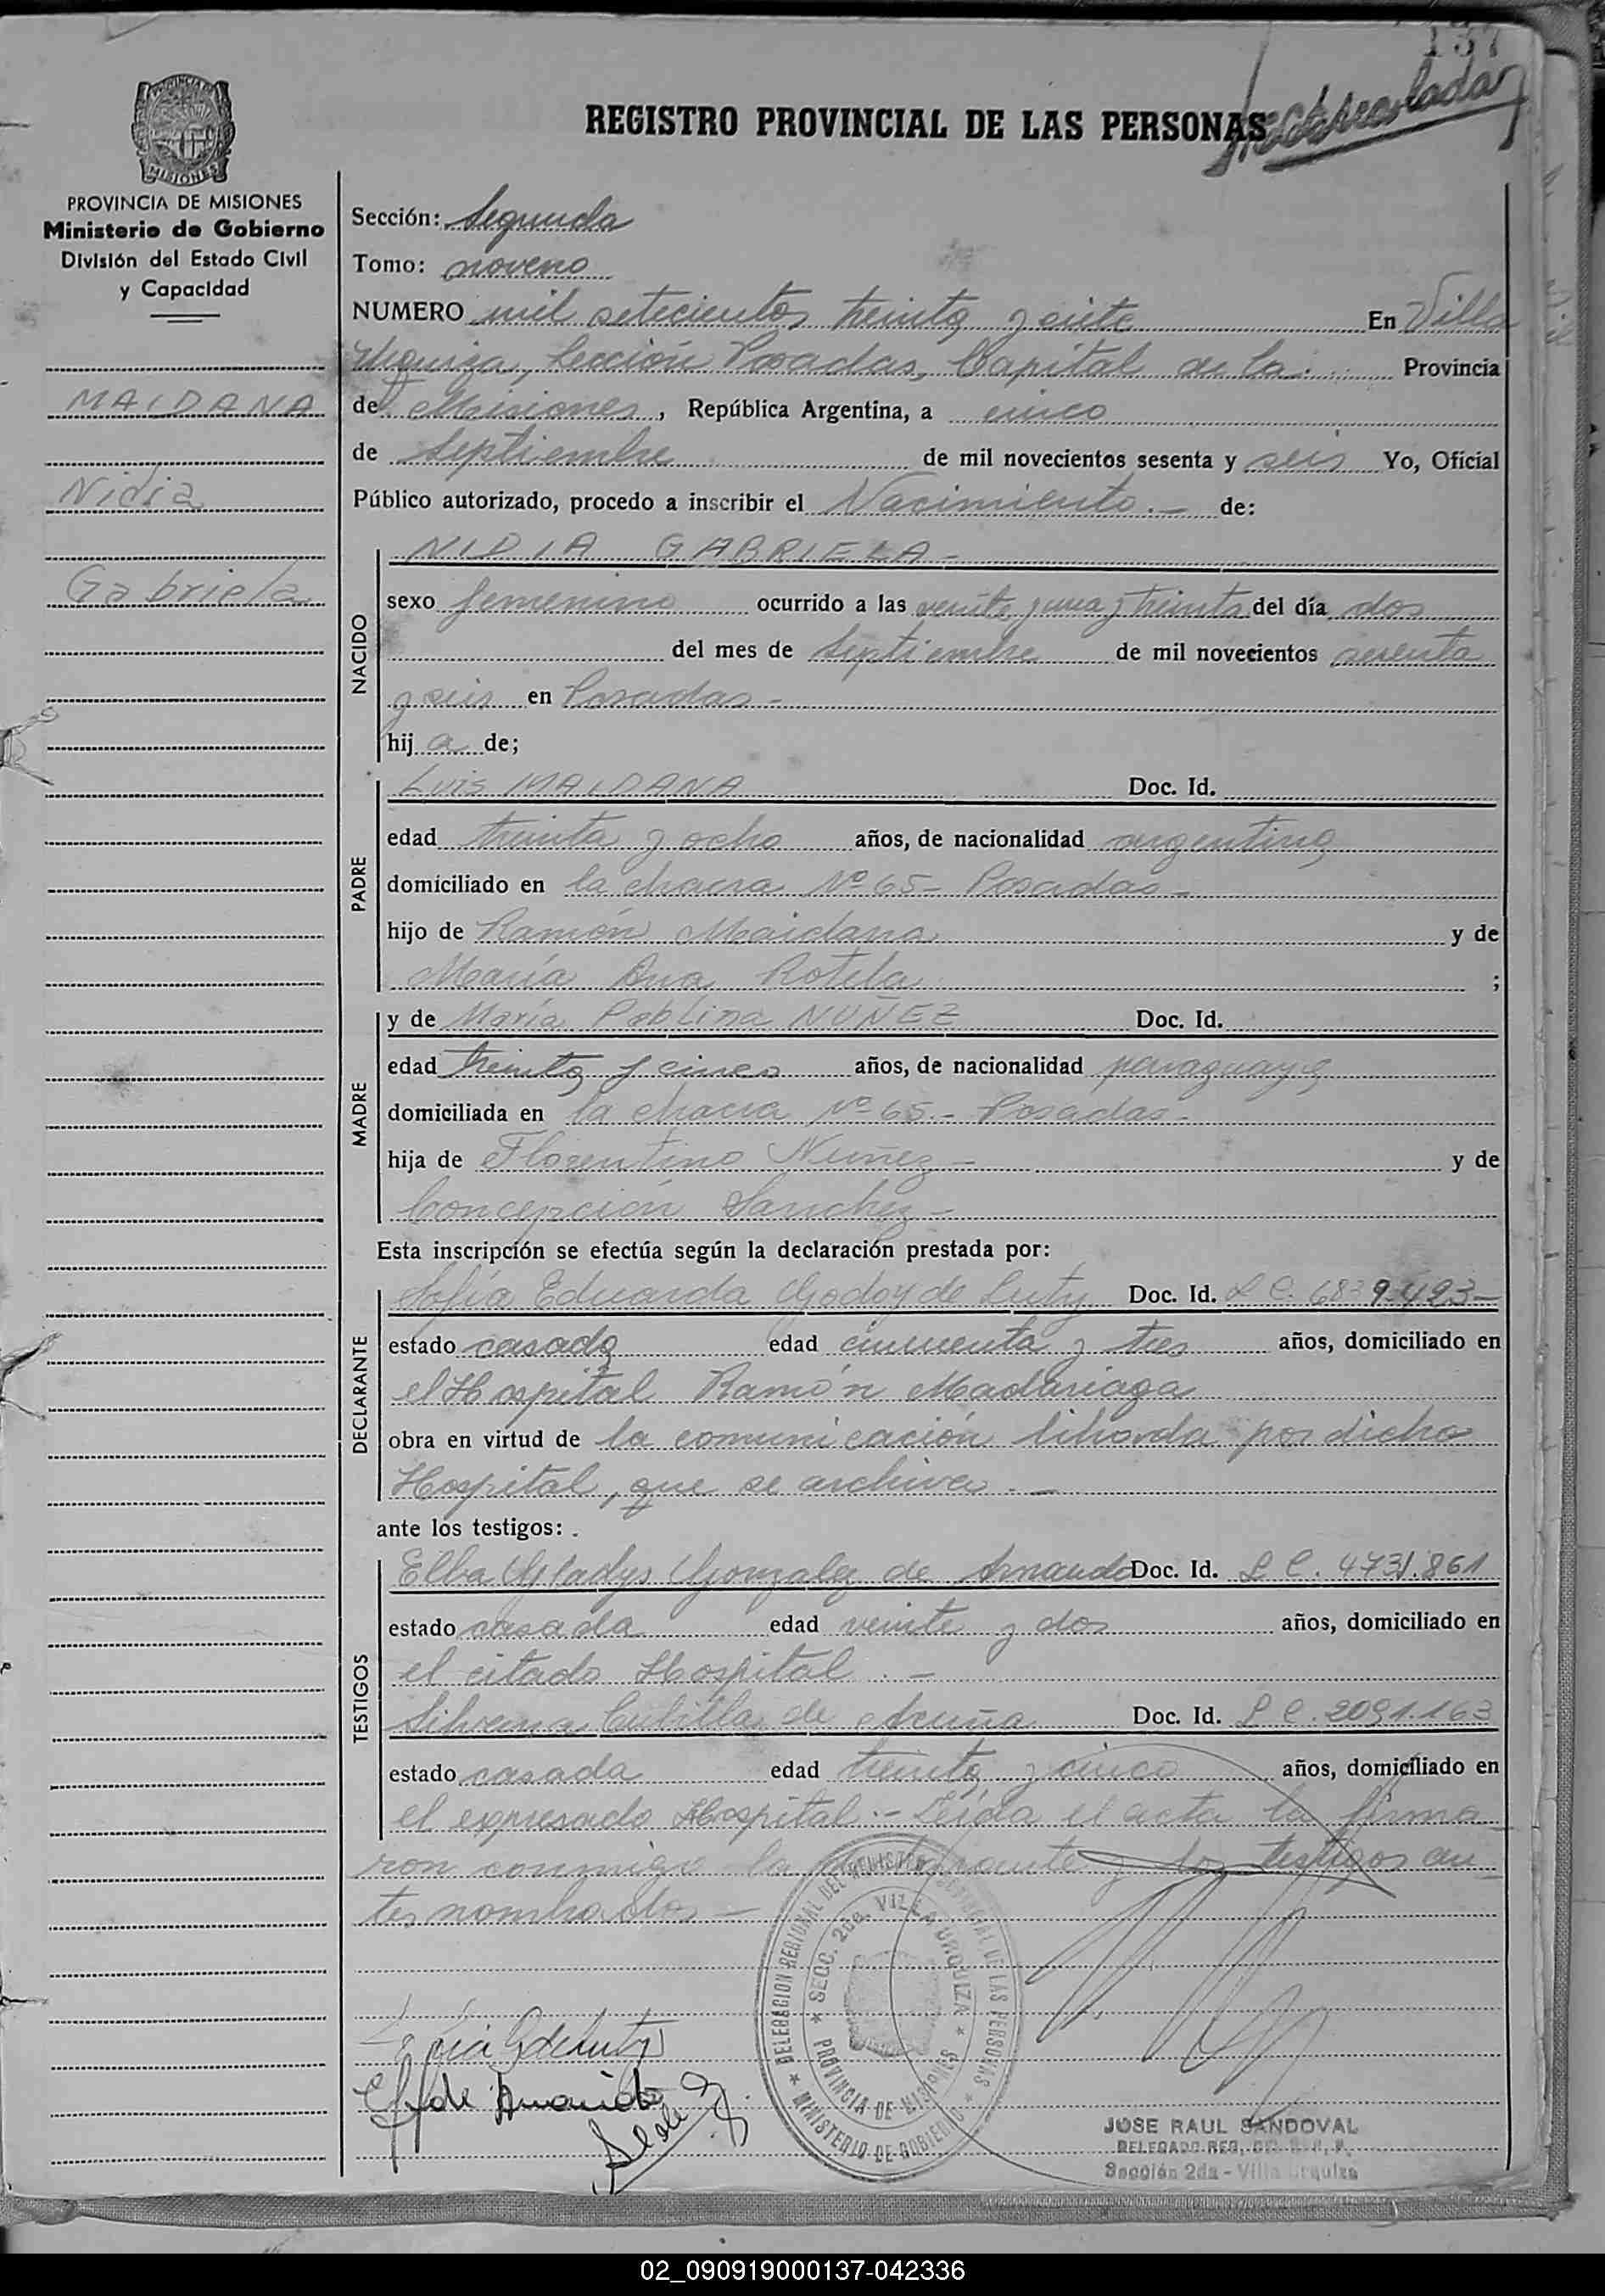 137
REGISTRO PROVINCIAL DE LAS PERSONAS
PROVINCIA DE MISIONES
Ministerio de Gobierno
División del Estado Civil
y Capacidad
MAIDANA
Nidia
Gabriela
Sección: Segunda
Tomo: noveno
NUMERO mil setecientos treinta y siete En Villa
Urquiza, Sección Posadas, Capital de la Provincia
de Misiones, República Argentina, a cinco
de Septiembre de mil novecientos sesenta y seis Yo, Oficial
Público autorizado, procedo a inscribir el Nacimiento.- de:
NACIDO
NIDIA GABRIELA-
sexo femenino ocurrido a las veinte y una y treinta del día dos
del mes de Septiembre de mil novecientos sesenta
y seis en Posadas-
hij a de;
PADRE
Luis MAIDANA Doc. Id.
edad treinta y ocho años, de nacionalidad argentina
domiciliado en la chacra Nº 65- Posadas-
hijo de Ramón Maidana y de
María Ana Rotela ;
MADRE
y de María Pablina NUÑEZ Doc. Id.
edad treinta y cinco años, de nacionalidad paraguaya
domiciliada en la chacra Nº 65.- Posadas-
hija de Florentino Nuñez- y de
Concepción Sanchez-
Esta inscripción se efectúa según la declaración prestada por:
DECLARANTE
Sofía Eduarda Godoy de Luty Doc. Id. L C. 6839.423-
estado casada edad cincuenta y tres años, domiciliado en
el Hospital Ramón Madariaga
obra en virtud de la comunicación librada por dicho
Hospital, que se archiva.-
ante los testigos:
TESTIGOS
Elba Gladys Gonzalez de Doc. Id. L C. 4731.861
estado casada edad veinte y dos años, domiciliado en
el citado Hospital.-
Silveria Cubilla de Acuña Doc. Id. L C. 2091.163
estado casada edad treinta y cinco años, domiciliado en
el expresado Hospital.- Leída el acta la firma
ron conmigo la declarante y los testigos an
tes nombrados-
DELEGACION REGIONAL DEL REGISTRO PROVINCIAL DE LAS PERSONAS
SECC. 2da. VILLA URQUIZA
PROVINCIA DE MISIONES
MINISTERIO DE GOBIERNO
JOSE RAUL SANDOVAL
DELEGADO REG.
Sección 2da - Villa Urquiza
02_090919000137-042336